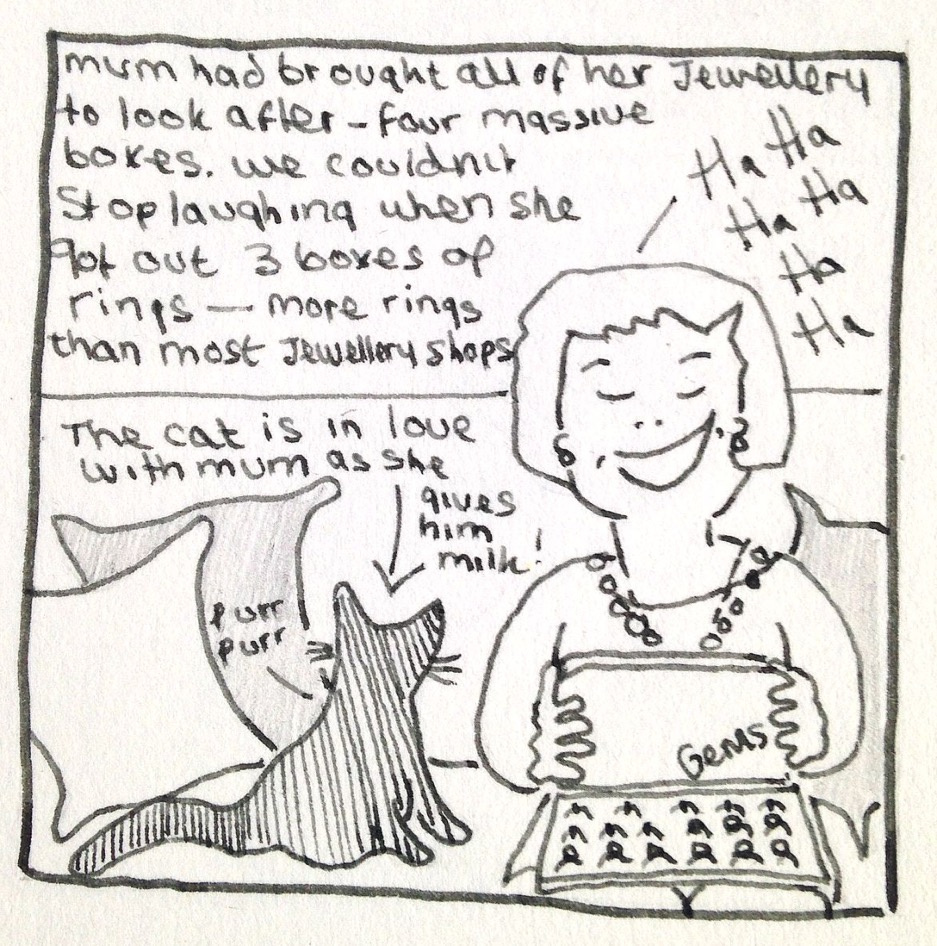 mum had brought all of her Jewellery
to look after - four massive
boxes. we couldn't
Stop laughing when she
got out 3 boxes of
rings — more rings
than most Jewellery shops
Ha Ha
Ha Ha
Ha
Ha
The cat is in love
with mum as she
gives
him
milk!
purr
purr
Gems